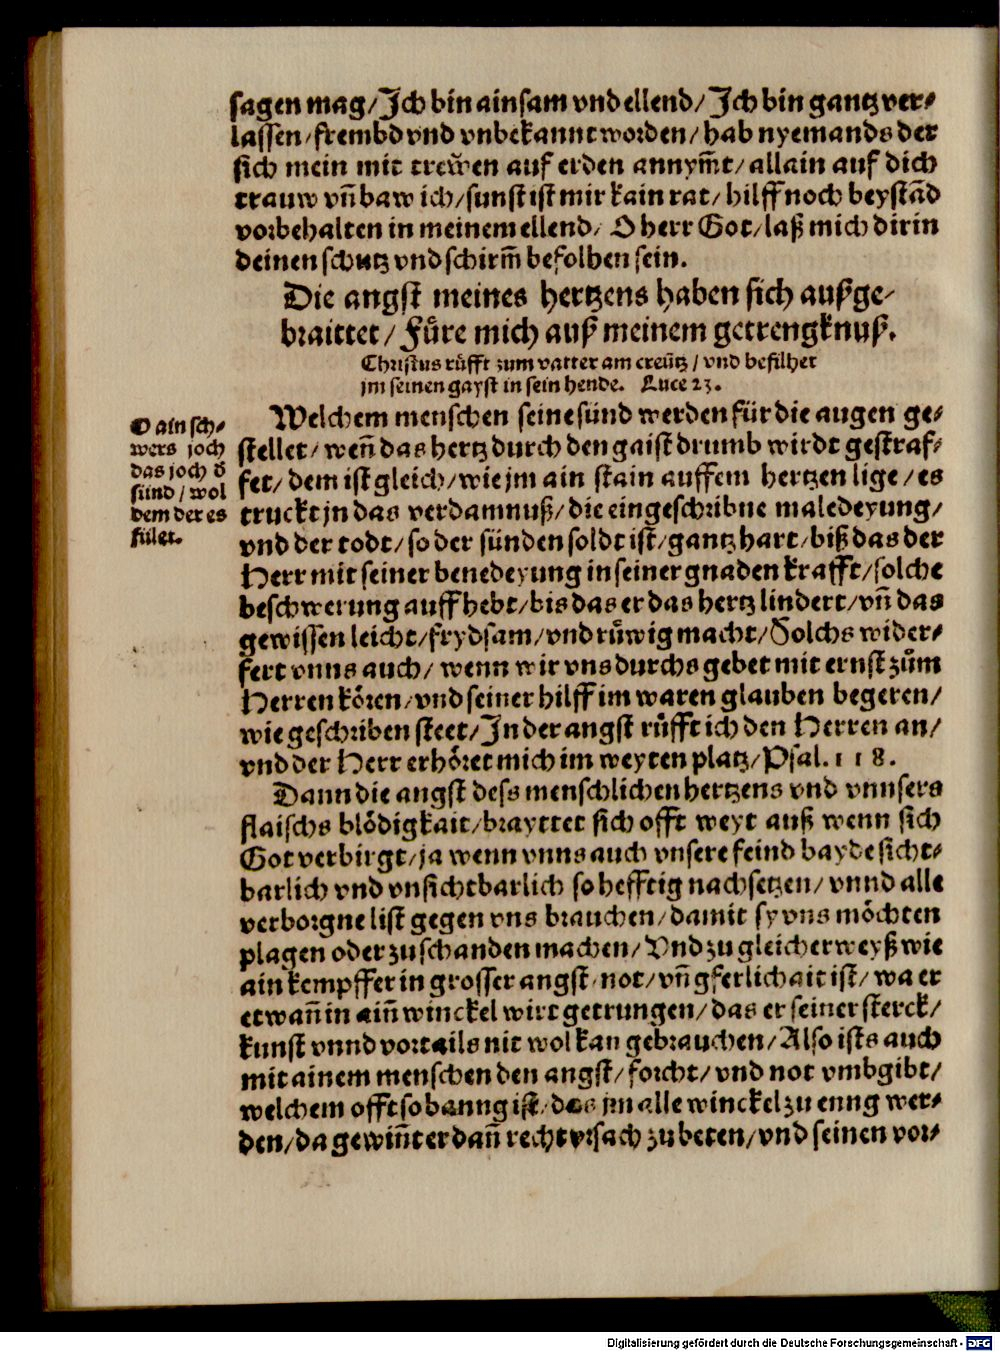 sagen mag/ Jch bin ainsam vnd ellend/ Jch bin gantz ver-
lassen/ frembd vnd vnbekannt worden/ hab nyemands der
sich mein mit trewͤen auf erden annym̄t/ allain auf dich
trauw vn̄ baw ich/ sunst ist mir kain rat/ hilff noch beystād
vorbehalten in meinem ellend/ O herr Got/ laß mich dir in
deinen schutz vnd schirm̄ befolhen sein.
Die angst meines hertzens haben sich außge-
braittet/ Fuͤre mich auß meinem getrengknuß.
Christus ruͤfft zum vatter am creuͤtz/ vnd befilhet
jm seinen gayst in sein hende. Luce 23.
O ain sch-
wers joch
das joch d̄
sünd/ wol
dem der es
fület.
Welchem menschen seine sünd werden für die augen ge-
stellet/ wen̄ das hertz durch den gaist drumb wirdt gestraf-
fet/ dem ist gleich/ wie jm ain stain auffem hertzen lige/ es
truckt jn das verdamnuß/ die eingeschribne maledeyung/
vnd der todt/ so der sünden soldt ist/ gantz hart/ biß das der
Herr mit seiner benedeyung in seiner gnaden krafft/ solche
beschwerung auff hebt/ bis das er das hertz lindert/ vn̄ das
gewissen leicht/ frydsam/ vnd ruͤwig macht/ Solchs wider-
fert vnns auch/ wenn wir vns durchs gebet mit ernst zuͦm
Herren koͤren/ vnd seiner hilff im waren glauben begeren/
wie geschriben steet/ Jn der angst ruͤfft ich den Herren an/
vnd der Herr erhoͤret mich im weyten platz/ Psal. 118.
Dann die angst dess menschlichen hertzens vnd vnnsers
flaischs bloͤdigkait/ brayttet sich offt weyt auß wenn sich
Got verbirgt/ ja wenn vnns auch vnsere feind bayde sicht-
barlich vnd vnsichtbarlich so hefftig nachsetzen/ vnnd alle
verborgne list gegen vns brauchen/ damit sy vns moͤchten
plagen oder zu schanden machen/ Vnd zu gleicher weyß wie
ain kempffer in grosser angst/ not/ vn̄ gferlichait ist/ wa er
etwan̄ in ain̄ winckel wirt getrungen/ das er seiner sterck/
kunst vnnd vortails nit wol kan gebrauchen/ Also ists auch
mit ainem menschen den angst/ forcht/ vnd not vmbgibt/
welchem offt so banng ist/ das jm alle winckel zu enng wer-
den/ da gewin̄t er dan̄ recht vrsach zu beten/ vnd seinen vor-
Digitalisierung gefördert durch die Deutsche Forschungsgemeinschaft - DFG